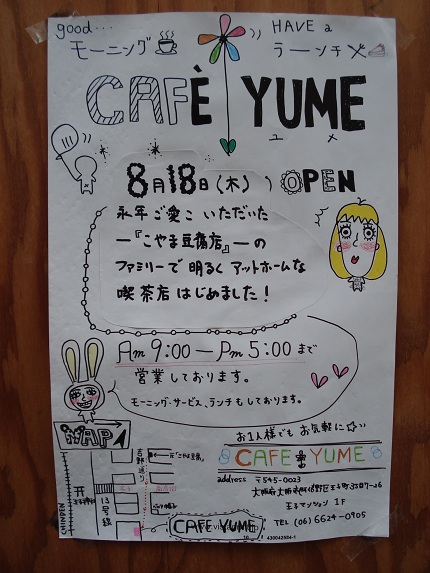 good...
モーニング
HAVE a
ラーンチ
CAFÈ YUME
ユメ
8月18日(木) OPEN
永年ご愛こいただいた
―『こやま豆腐店』―の
ファミリーで明るくアットホームな
喫茶店はじめました!
Am 9:00 ― Pm 5:00 まで
営業しております。
モーニング・サービス、ランチもしております。
MAP
お1人様でもお気軽に☆
CAFE YUME
address 〒545-0023
大阪府大阪市阿倍野区王子町
王子マンション 1F
TEL (06) 6624-0905
CHINDEN
13号線
CAFE YUME